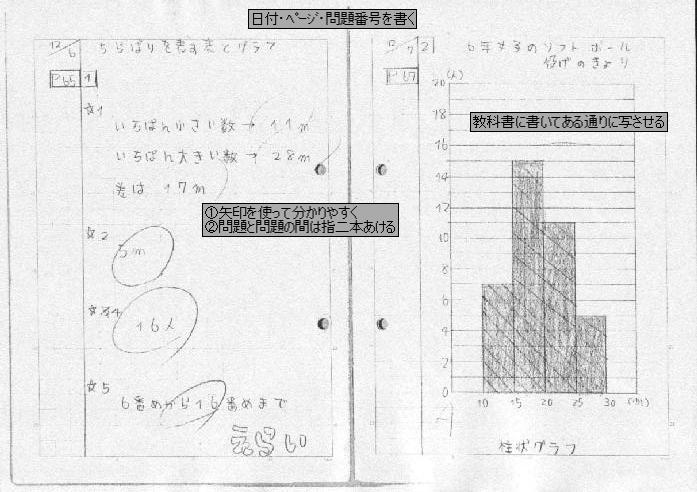 日付・ページ・問題番号を書く
12/6
ちらばりを表す表とグラフ
P65
1
☆1
いちばん小さい数→11m
いちばん大きい数→28m
差は 17m
①矢印を使って分かりやすく
②問題と問題の間は指二本あける
☆2
5m
16人
☆5
6番めから16番めまで
えらい
12/7
2
6年女子のソフトボール
投げのきょり
P67
(人)
教科書に書いてある通りに写させる
20
18
16
14
12
10
8
6
4
2
0
10 15 20 25 30 (m)
柱状グラフ